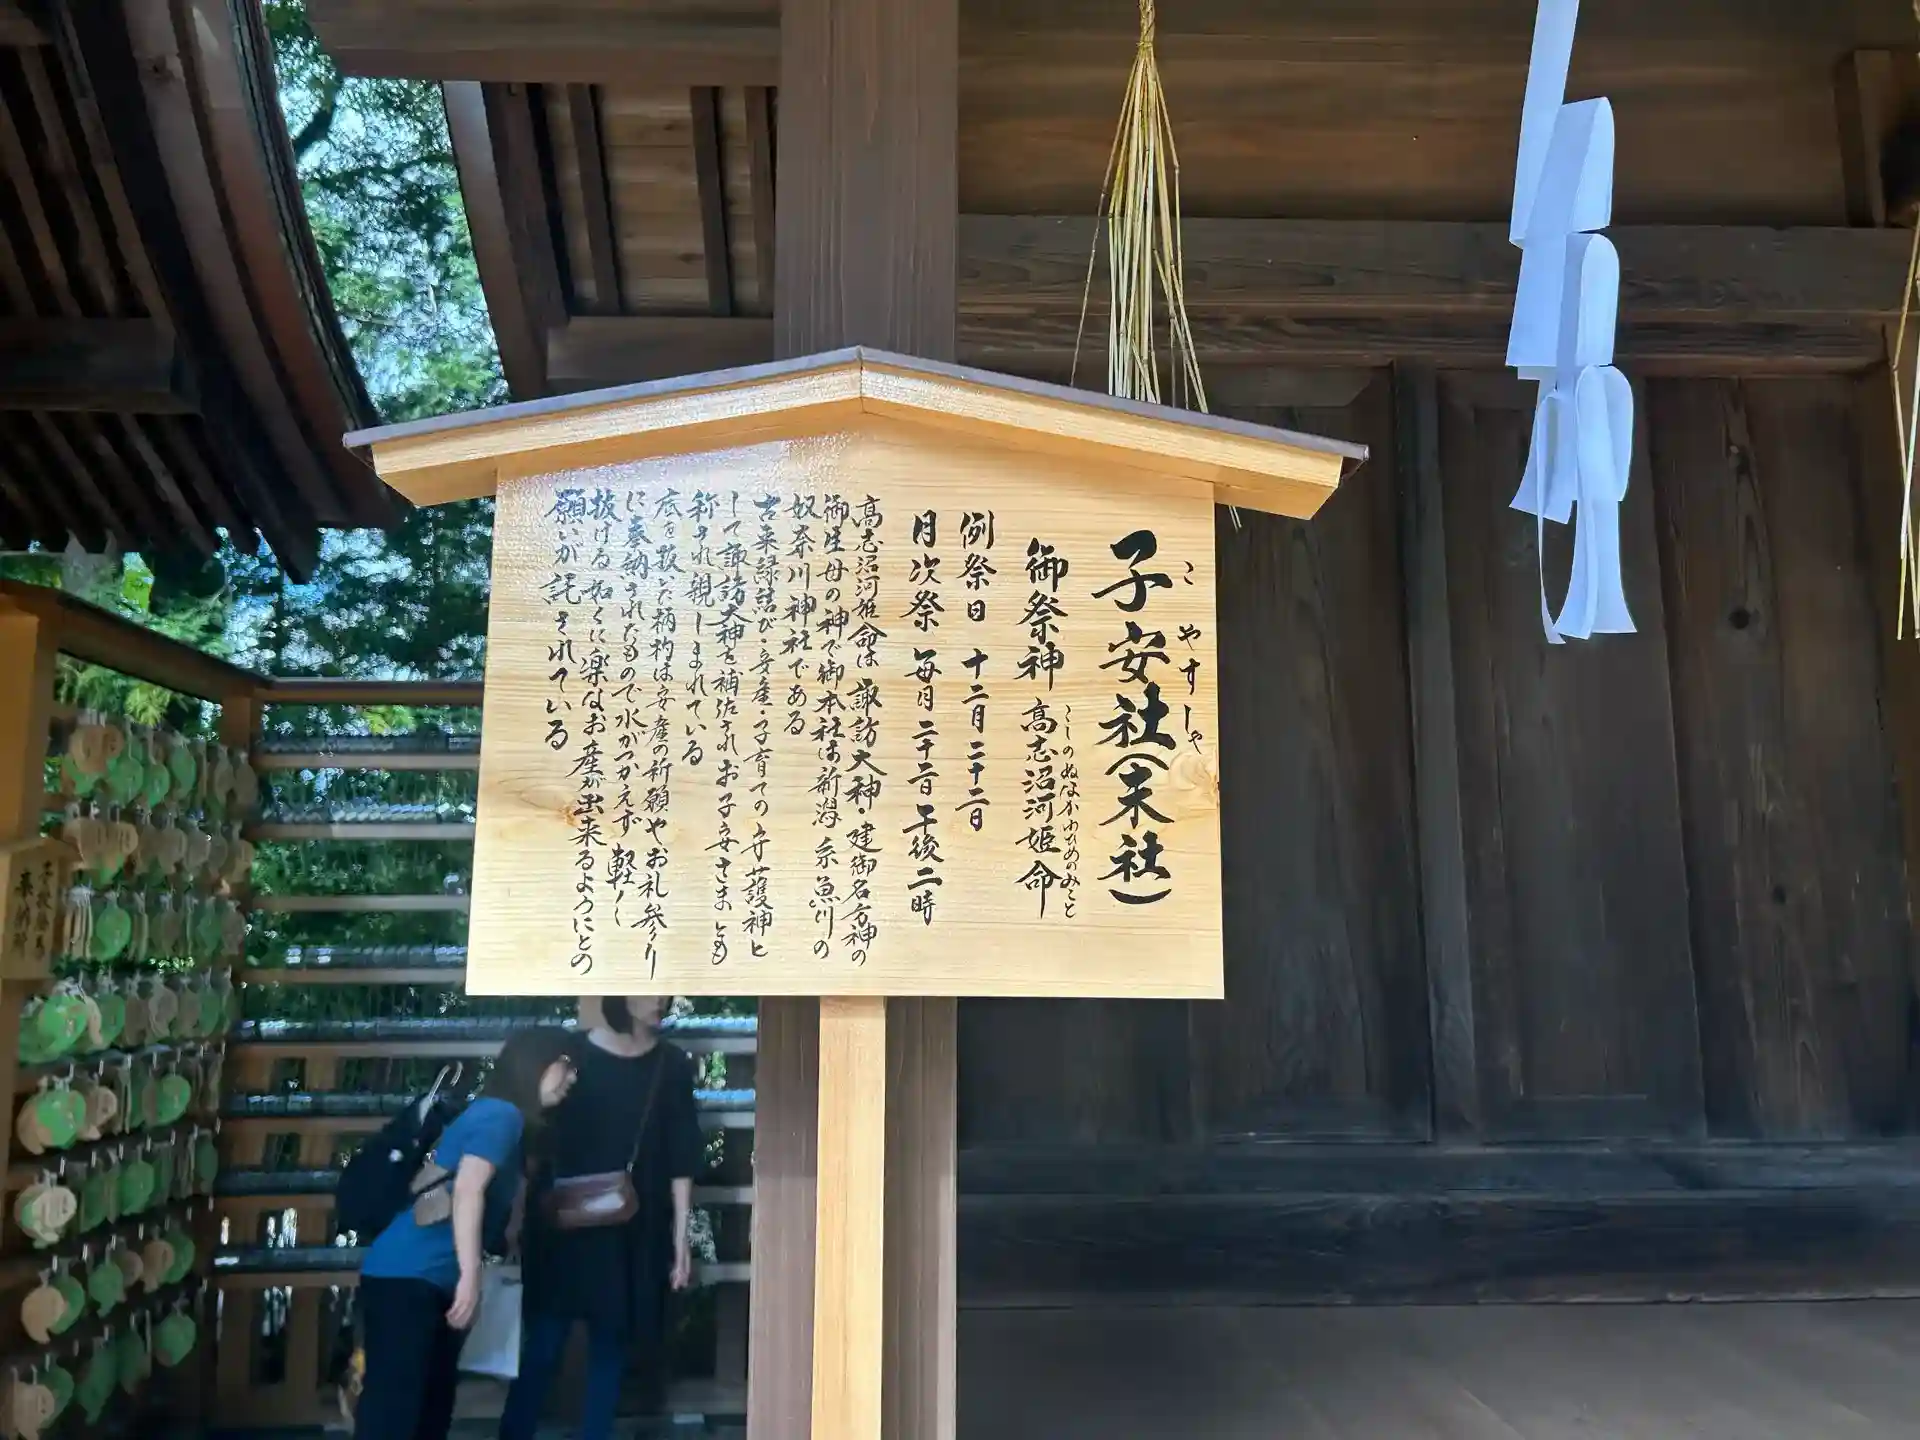 子安社(末社)
こやすしゃ
御祭神 高志沼河姫命
こしのぬなかわひめのみこと
例祭日 十二月二十二日
月次祭 毎月二十二日 午後二時
高志沼河姫命は諏訪大神・建御名方神の
御生母の神で御本社は新潟 糸魚川の
奴奈川神社である
古来縁結び・安産・子育ての守護神と
して諏訪大神を補佐されお子安さまとも
称され親しまれている
底を抜いた柄杓は安産の祈願やお礼参り
に奉納されたもので水がつかえず軽く
抜ける如くに楽なお産が出来るようにとの
願いが託されている